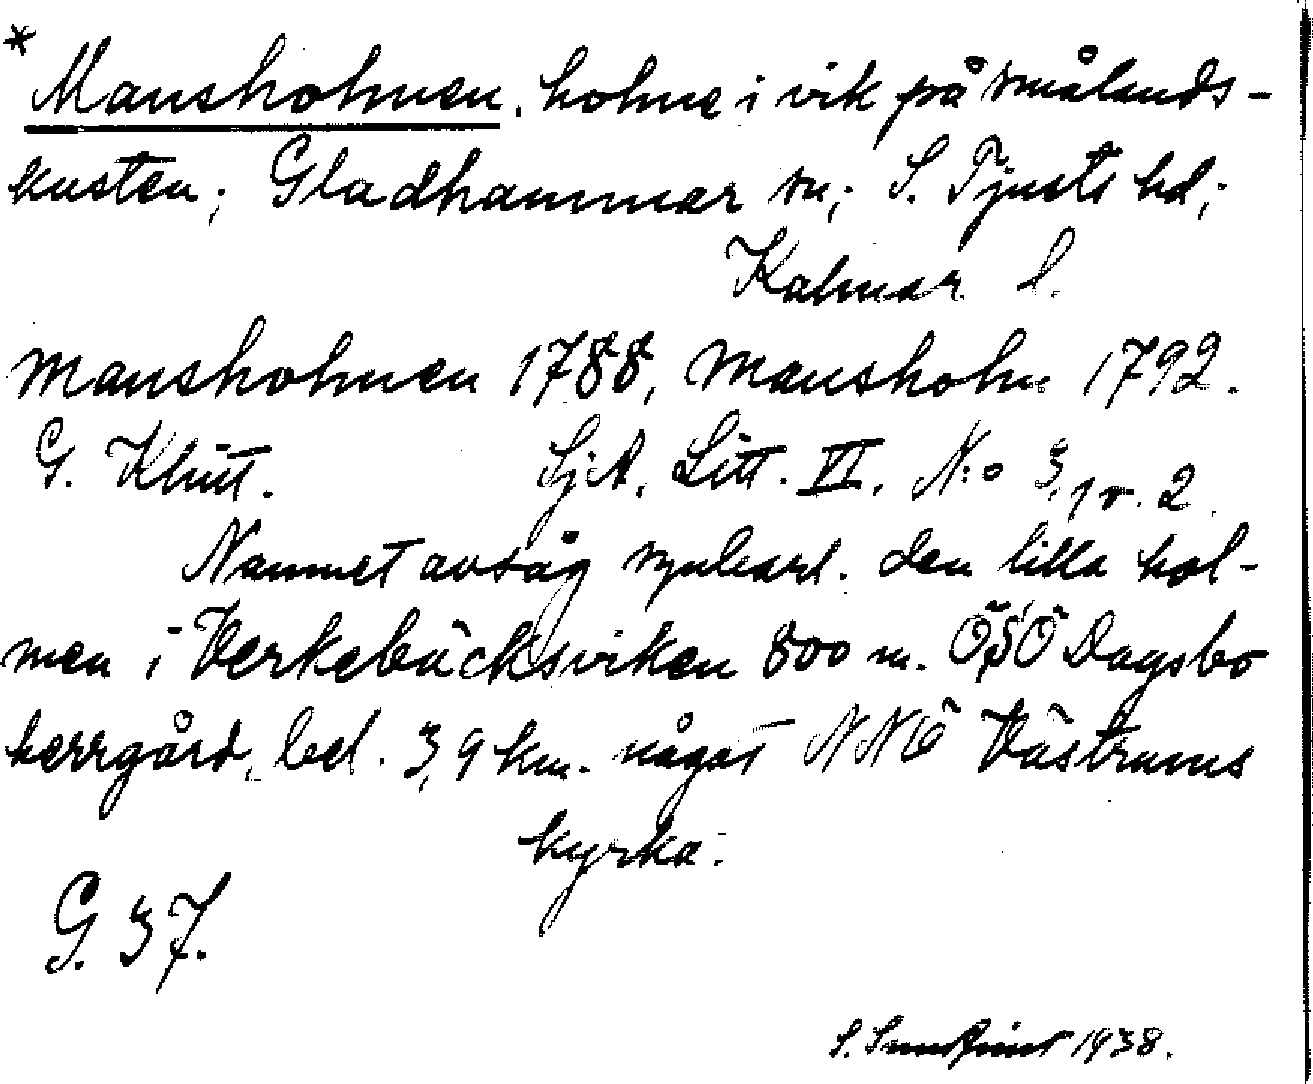 * Mansholmen. holme i vik på smålands-
kusten; Gladhammar sn; S. Tjusts hd;
Kalmar l.
Mansholmen 1788, Mansholm 1792.
G. Klint. SjA. Litt. VI. N:o 3, 1 o. 2.
Namnet avsåg synbarl. den lilla hol-
men i Verkebäcksviken 800 m. ÖSÖ Dagsbo
herrgård, bel. 3,9 km. något NNÖ Västrums
kyrka.
G. 37.
S. 1938.